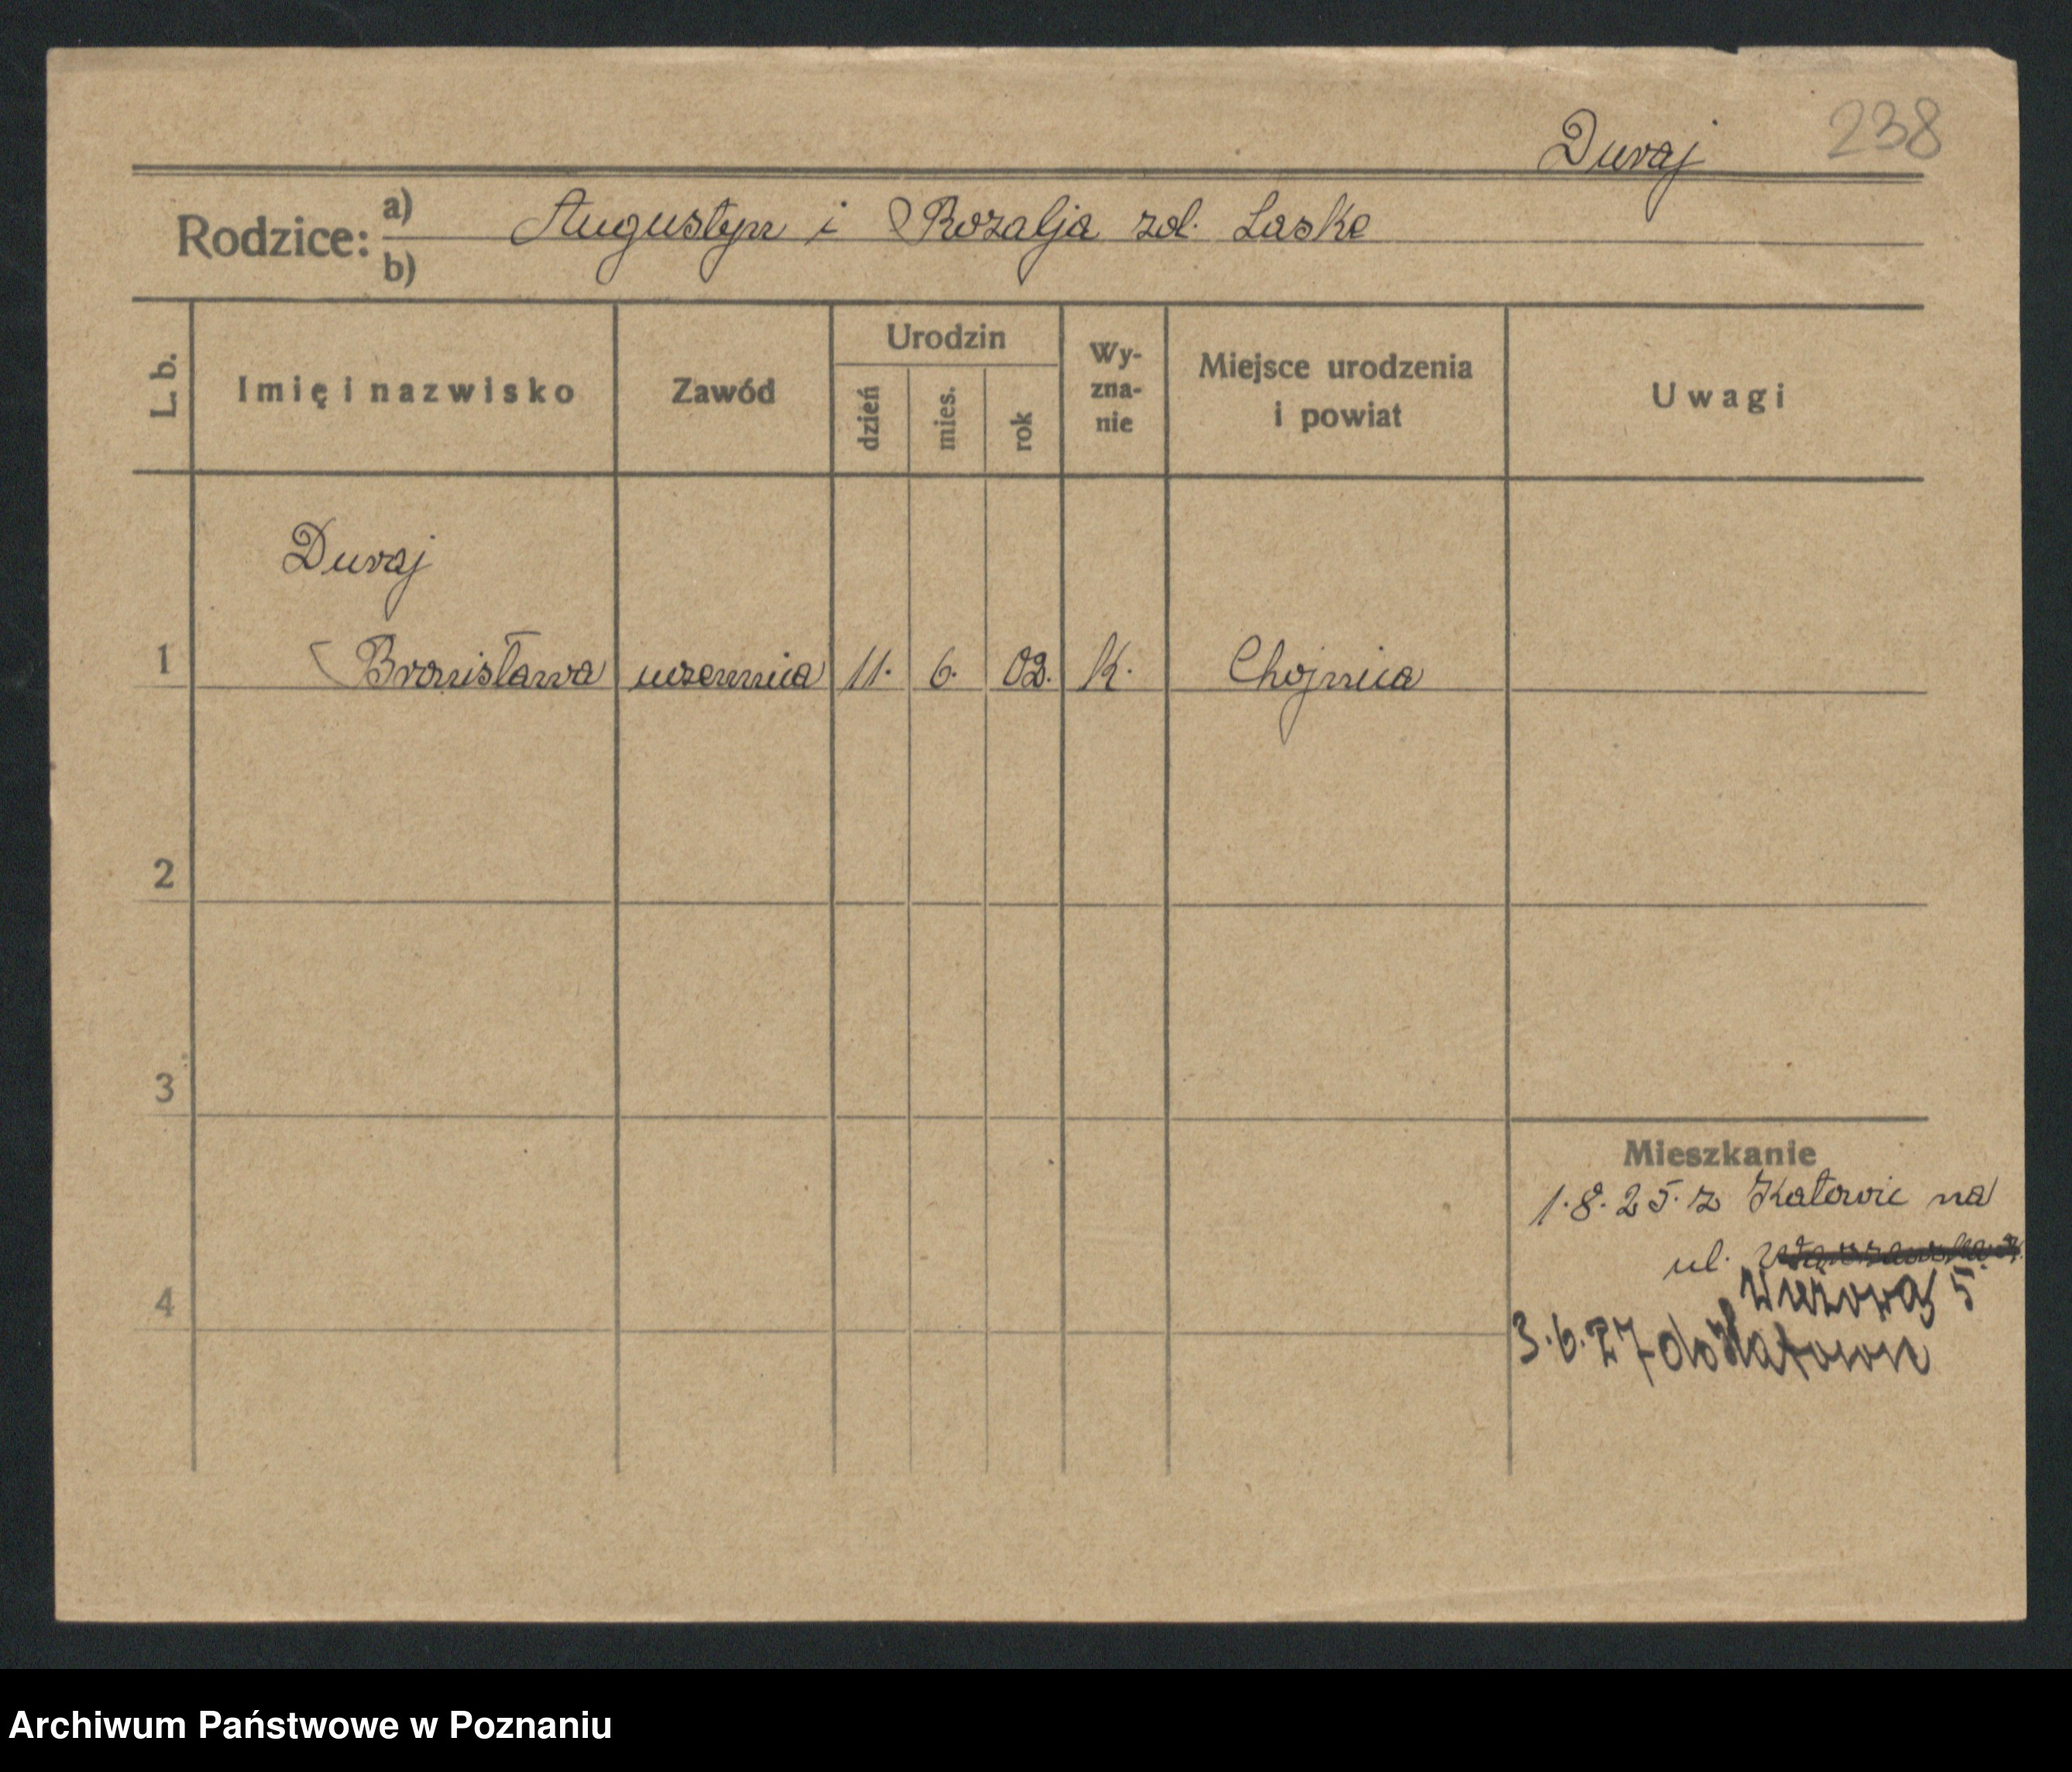 238
Duraj
Rodzice: a) Augustyn i Rozalja zd. Laske
b)
L. b.
Imię i nazwisko
Zawód
Urodzin
dzień
mies.
rok
Wy-
zna-
nie
Miejsce urodzenia
i powiat
Uwagi
Duraj
1 Bronisława uczennica 11. 6. 02. K. Chojnica
2
3
4
Mieszkanie
1.8.25. z Katowic na
ul.
5
3.6.27 do Katowic
Archiwum Państwowe w Poznaniu